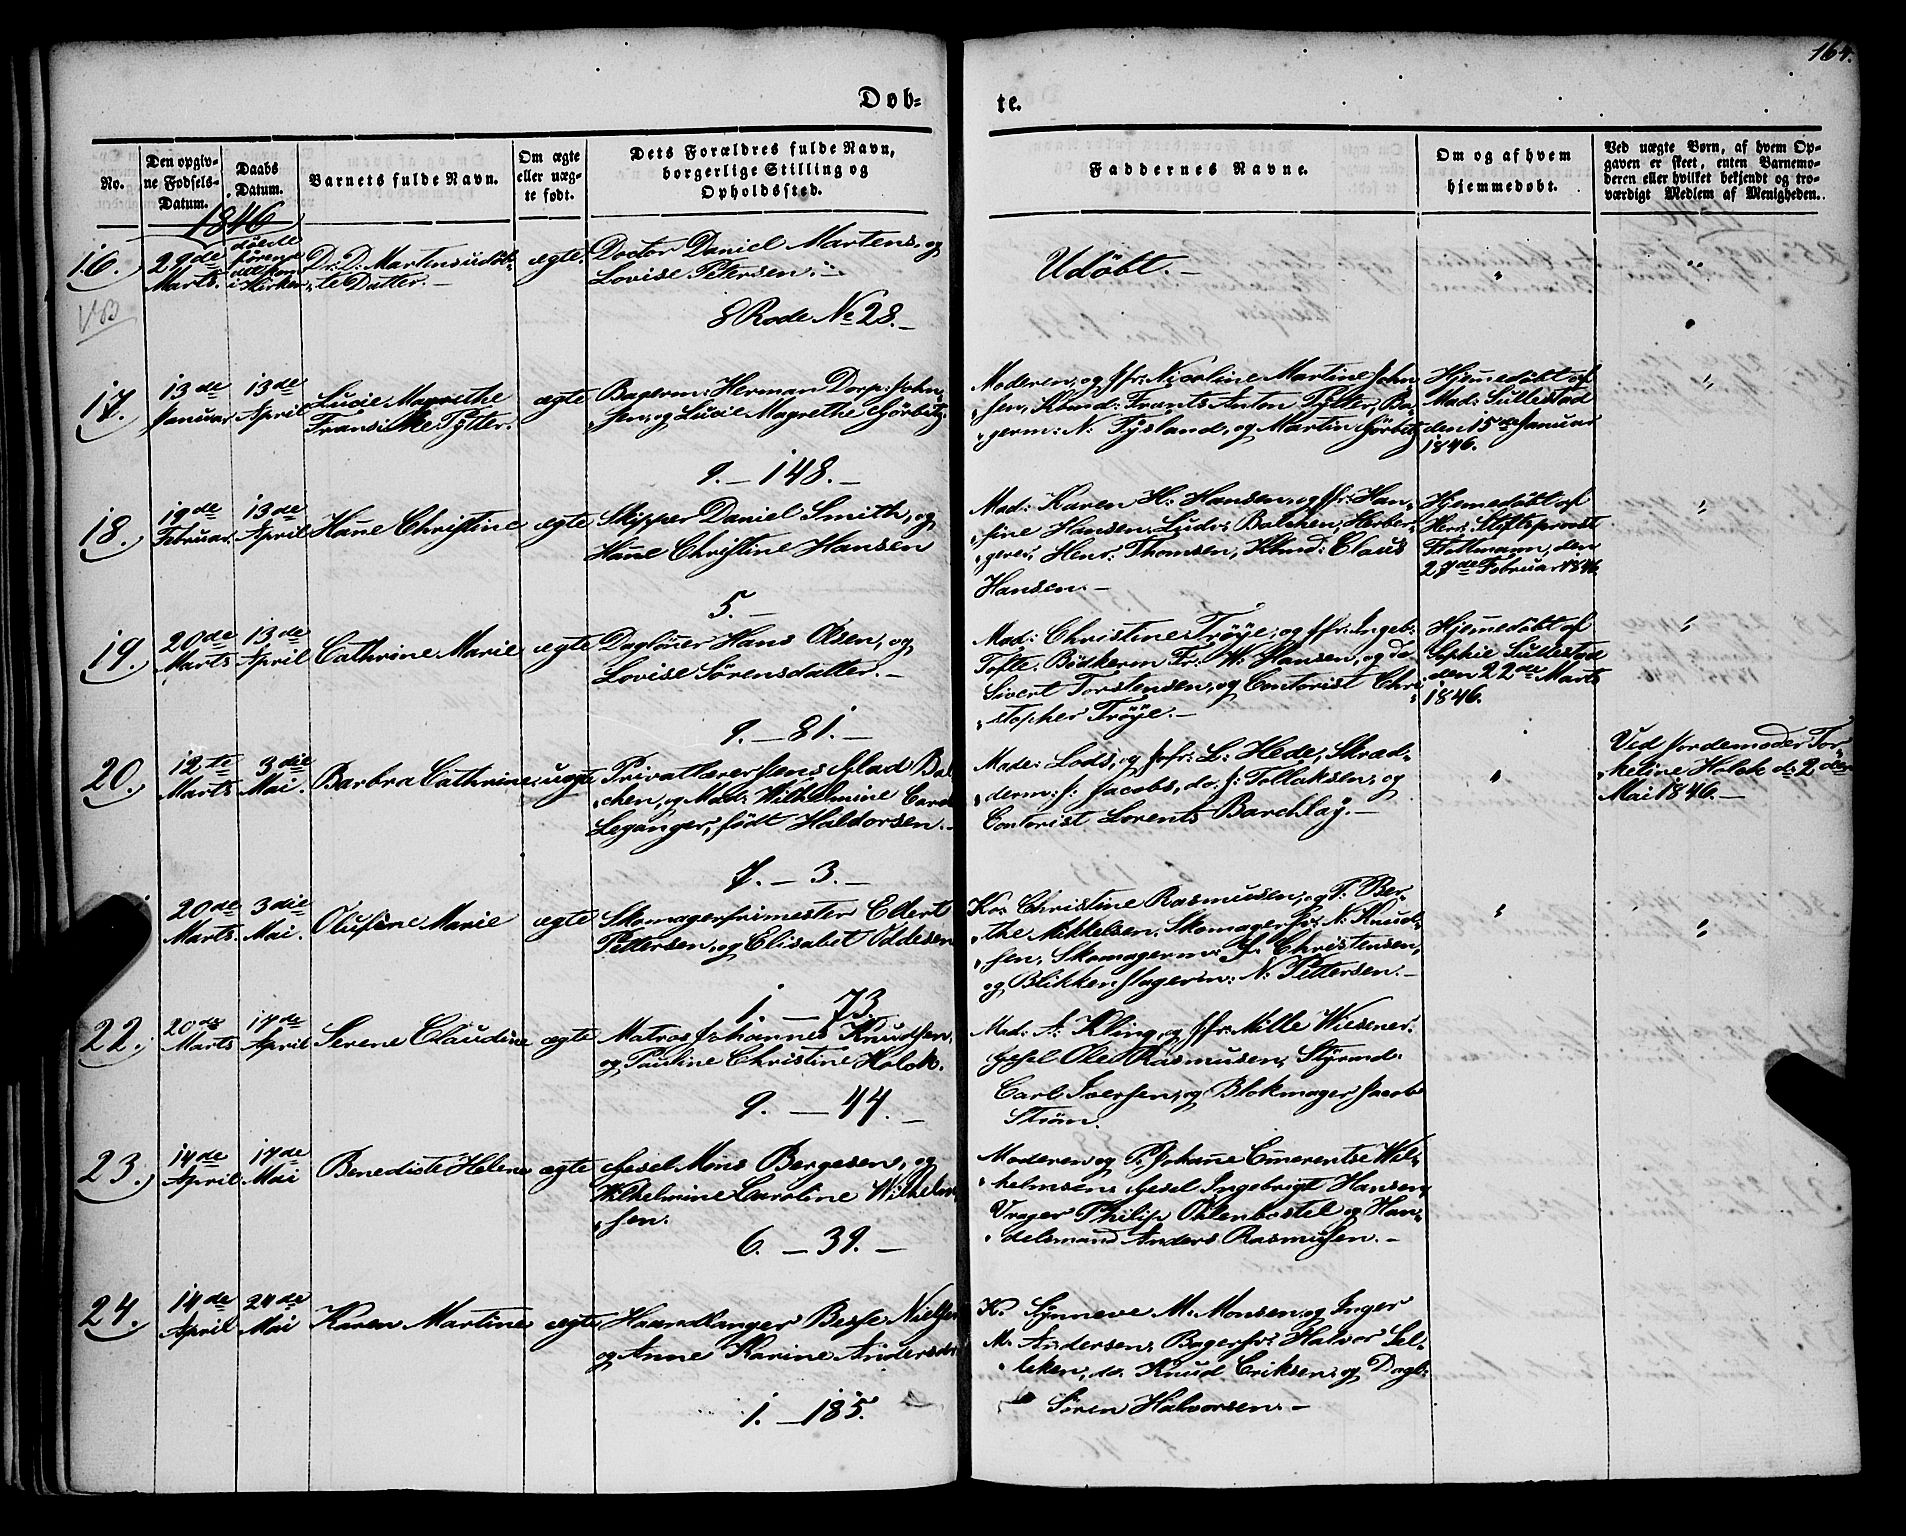 164.
Døb-
te.
No.
Den opgiv-
ne Fødsels-
Datum.
Daabs
Datum.
Barnets fulde Navn.
Om ægte
eller uæg-
te født.
Dets Forældres fulde Navn,
borgerlige Stilling og
Opholdssted.
Faddernes Navne.
Om og af hvem
hjemmedøbt.
Ved uægte Børn, af hvem Op-
gaven er skeet, enten Barnemo-
deren eller hvilket bekjendt og tro-
værdigt Medlem af Menigheden.
1846
16.
29de
Marts.
døde
førend
det kom
i Kirken
Dr: D: Martens udøb-
te Datter. —
ægte.
Doctor Daniel Martens, og
Lovise Petersen. —
8 Rode No 28. —
Udøbt. —
17.
13de
Januar.
13de
April
Lucie Magrethe
Fransiske Pÿtter.
ægte
Bagerm: Herman Dorp: John-
sen, og Lucie Magrethe Gørbitz
9. — 148. —
Moderen, og Jfr: Nicoline Martine John-
sen, Kbmd: Frants Anton Pÿtter, Ba-
germ: N: Tÿsland, og Martin Gørbitz
Hjemedøbt af
Mad: Sullestad
den 15de Januar
1846.
18.
19de
Februar.
13de
April
Hane Christine
ægte
Skipper Daniel Smith, og
Hane Christine Hansen
5. —
Mad: Karen H: Hansen, og Jfr: Han-
sine Hansen, Ludv: Balchen, Herber-
gerer Henr: Thomsen, Kbmd: Claus
Hansen. —
Hjemedøbt af
Herr: Stiftsprovst
den
27de Februar 1846
19.
20de
Marts
13de
April
Cathrine Marie
ægte
Dagløner Hans Olsen, og
Lovise Sørensdatter. —
9. — 81. —
Mad: Christine Trøÿe, og Jfr: Ingeb:
Tofte, Bødkerm Fr: W: Hansen, og do
Sivert Torstensen, og Contorist Chri-
stopher Trøÿe. —
Hjemedøbt af
Sophie Sullestad
den 22de Marts
1846.
20.
12te
Marts
3die
Mai.
Barbra Cathrine
uægte
Privatlærer Jens Glad Bal-
chen, og Mad: Wilhelmine Carol:
Leganger, født Haldorsen. —
7. — 3. —
Made: Lods, og Jfr: L: Hede, Skræd-
derm: J: Jacobs, do. J: Tollaksen, og
Contorist Lorents Barchlaÿ. —
Ved Jordemoder Tor-
keline Holck d: 2den
Mai 1846. —
20de
Marts.
3die
Mai.
Olufine Marie
ægte
Skomagerfrimester Eilert
Pettersen, og Elisabet Oddesen
1. — 73.
Ko: Christine Rasmussen, og P. Ber-
the Mikkelsen, Skomagerfr: N: Knud-
sen, Skomagerm: J: Christensen,
og Blikkenslagerm: N: Pettersen. —
22.
20de
Marts
17de
April
Serene Claudine
ægte
Matros Johannes Knudsen,
og Pauline Christine Holck.
9. — 44. —
Mad: A: Kling, og Jfr: Mille Wiesener,
Gesel Ole Rasmusen, Stÿrmd:
Carl Iversen, og Blokmager Jacob
Strøm.
23.
14de
April
17de
Mai
Benedicte Helene
ægte
Gesel Mons Bergesen, og
Wilhelmine Caroline Wilhelm-
sen.
6. — 39. —
Moderen, og P. Johane Emerentse Wil-
helmsen, Gesel Ingebrigt Hansen,
Vrager Philip Ohlenbostel og Han-
delsmand Anders Rasmusen. —
24.
14de
April
24de
Mai
Karen Martine
ægte
Haandlanger Besse Nielsen
og Anne Karine Andersdtr
1. — 185.
K. Sÿnneve M. Monsen, og Inger
M. Andersen, Bagerfr: Halvor Sel-
leken, do. Knud Eriksen, og Dagl:
Søren Halvorsen. —